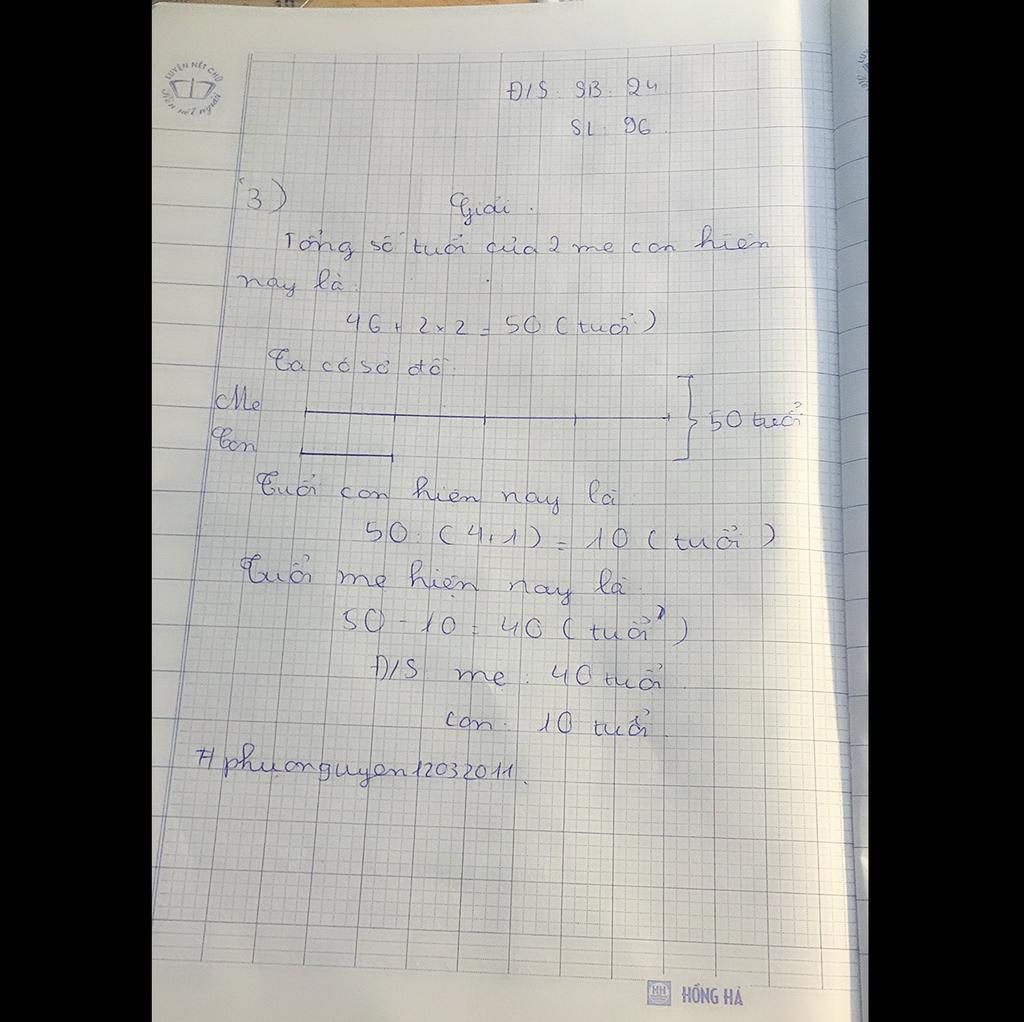 LUYỆN NÉT CHỮ
Rèn nết người
Đ/S: SB: 24
SL: 96
3) Giải.
Tổng số tuổi của 2 mẹ con hiện
nay là:
46 + 2 × 2 = 50 (tuổi)
Ta có sơ đồ:
Mẹ
50 tuổi
Con
Tuổi con hiện nay là:
50 : (4+1) = 10 (tuổi)
Tuổi mẹ hiện nay là:
50 - 10 = 40 (tuổi)
Đ/S: mẹ: 40 tuổi
con: 10 tuổi
#phuonguyen12032011.
HH HỒNG HÀ